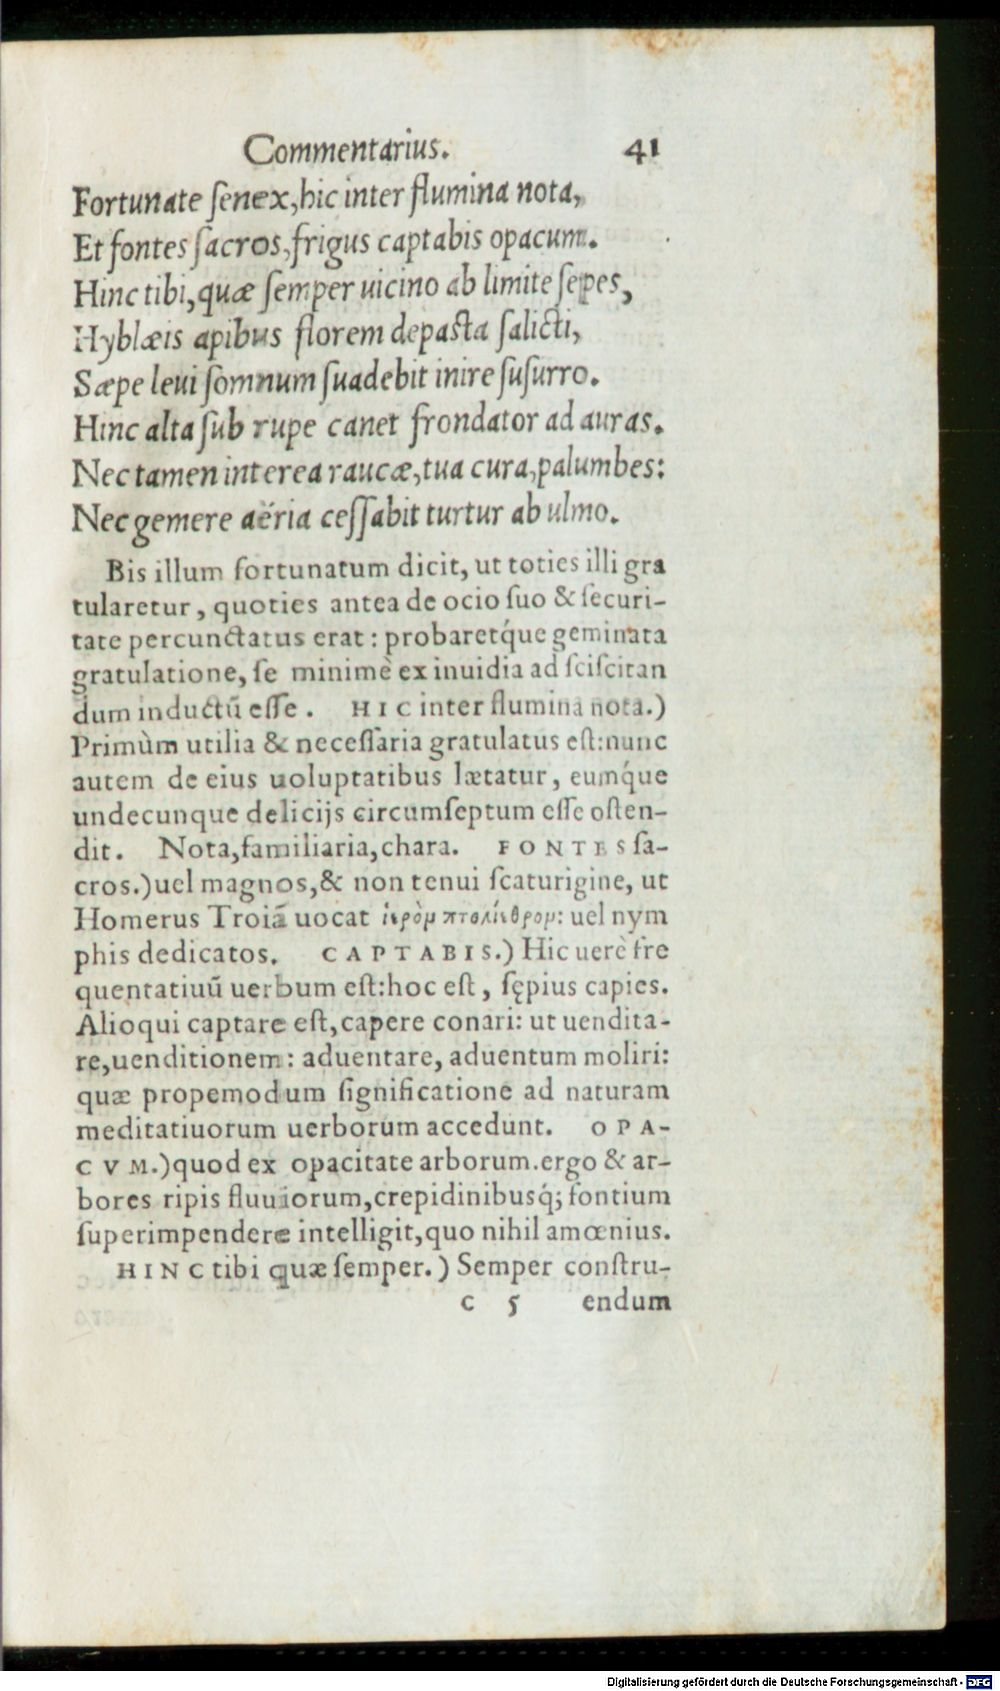 Commentarius. 41
Fortunate ſenex, hic inter flumina nota,
Et fontes ſacros, frigus captabis opacum.
Hinc tibi, quæ ſemper uicino ab limite ſepes,
Hyblæis apibus florem depaſta ſalicti,
Sæpe leui ſomnum ſuadebit inire ſuſurro.
Hinc alta ſub rupe canet frondator ad auras.
Nec tamen interea raucæ, tua cura, palumbes:
Nec gemere aëria ceſſabit turtur ab ulmo.
Bis illum fortunatum dicit, ut toties illi gra
tularetur, quoties antea de ocio ſuo & ſecuri-
tate percunctatus erat: probaretq́ue geminata
gratulatione, ſe minimè ex inuidia ad ſciſcitan
dum inductũ eſſe. HIC inter flumina nota.)
Primùm utilia & neceſſaria gratulatus eſt: nunc
autem de eius uoluptatibus lætatur, eumq́ue
undecunque delicijs circumſeptum eſſe oſten-
dit. Nota, familiaria, chara. FONTES ſa-
cros.) uel magnos, & non tenui ſcaturigine, ut
Homerus Troiã uocat ἱερὸμ πτολίεθρομ: uel nym
phis dedicatos. CAPTABIS.) Hic uerè fre
quentatiuũ uerbum eſt: hoc eſt, ſępius capies.
Alioqui captare eſt, capere conari: ut uendita-
re, uenditionem: aduentare, aduentum moliri:
quæ propemodum ſignificatione ad naturam
meditatiuorum uerborum accedunt. OPA-
CVM.) quod ex opacitate arborum. ergo & ar-
bores ripis fluuiorum, crepidinibusq́; fontium
ſuperimpendere intelligit, quo nihil amœnius.
HINC tibi quæ ſemper.) Semper conſtru-
c 5 endum
Digitalisierung gefördert durch die Deutsche Forschungsgemeinschaft - DFG